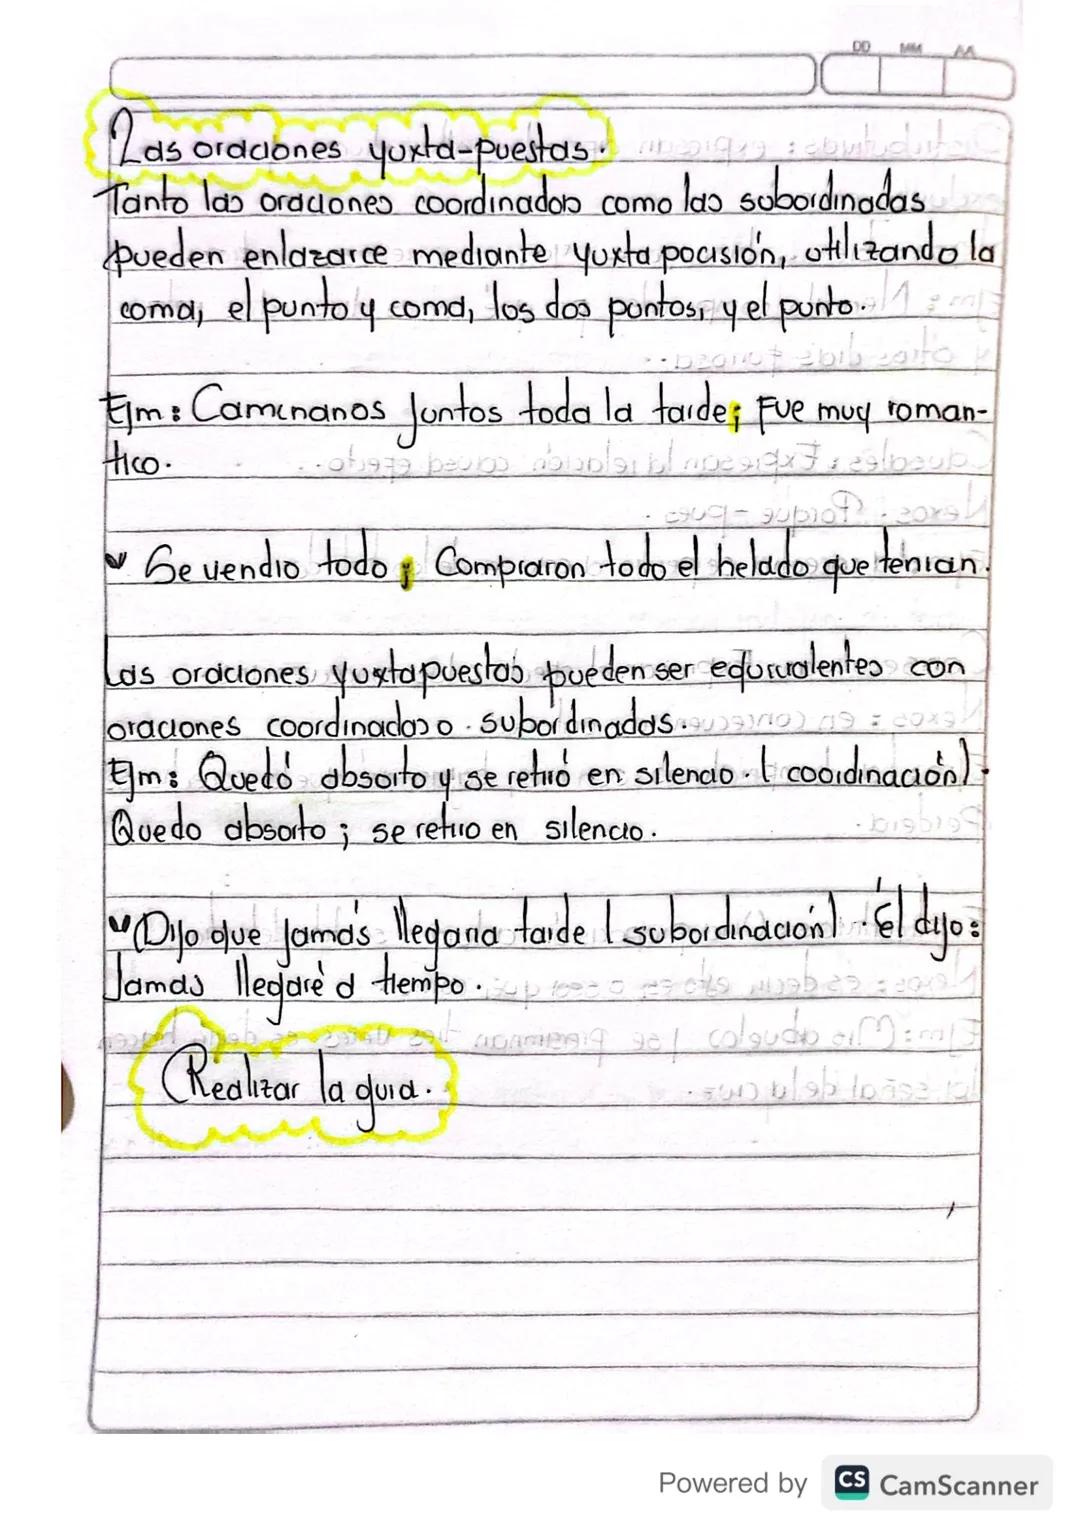 DD MM AA
Las oraciones yuxta-puestas.
Tanto las oraciones coordinadas como las subordinadas
pueden enlazarce mediante yuxta pocisión, utilizando la
coma, el punto y coma, los dos puntos, y el punto.
Ejm: Caminanos Juntos toda la tarde; Fue muy roman-
tico.
Se vendio todo; Compraron todo el helado que tenian.
Las oraciones yuxtapuestas pueden ser equivalentes con
oraciones coordinadas o. subordinadas.
Ejm: Quedó absorto y se retiró en silencio. (coordinación).
Quedo absorto; se retiro en silencio.
Dijo que jamás llegaria tarde (subordinación). Él dijo:
Jamas llegaré a tiempo.
Realizar la guia.
Powered by CS CamScanner